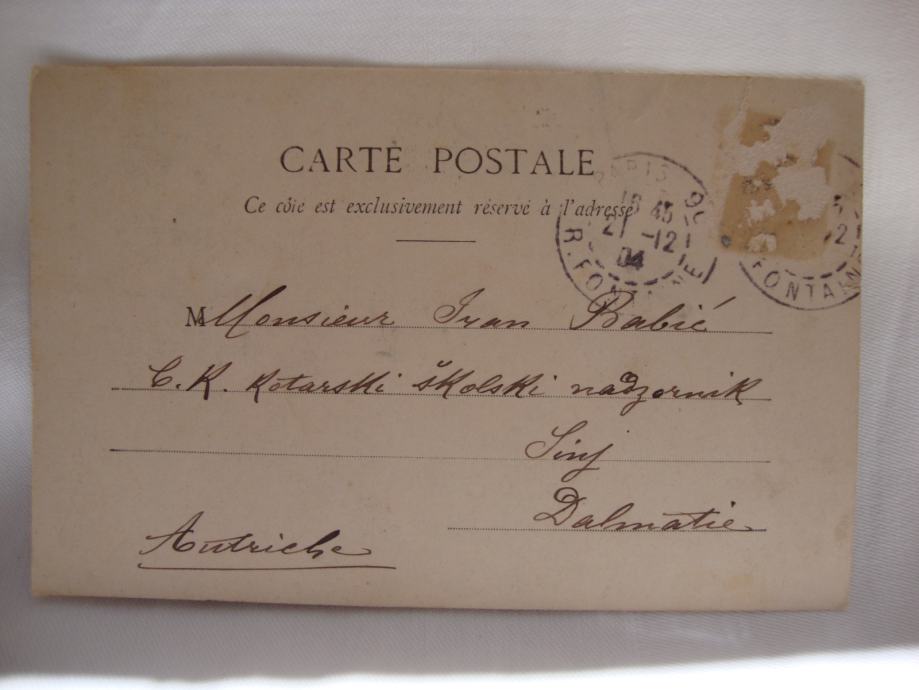 CARTE POSTALE
Ce côté est exclusivement réservé à l'adresse
PARIS 90
18 45
21 -12
04
R. FONTAINE
5
12
FONTAINE
M Monsieur Ivan Babić
C. K. Kotarski školski nadzornik
Sinj
Dalmatie
Autriche